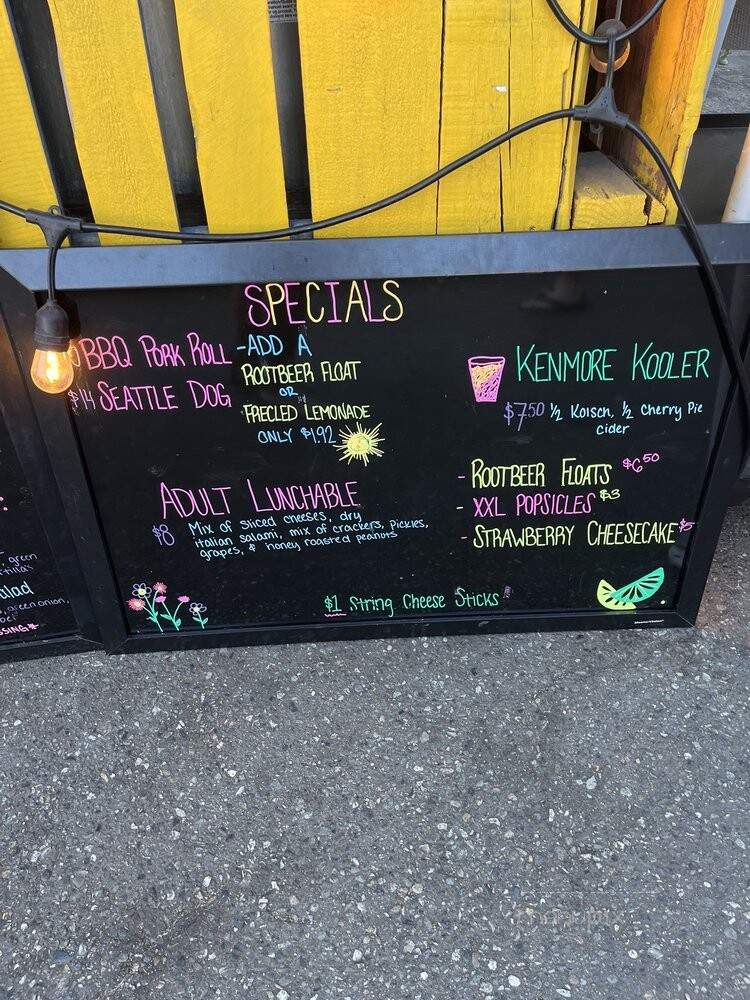 SPECIALS
BBQ PORK ROLL
$14 SEATTLE DOG
-ADD A
ROOTBEER FLOAT
OR
FRECLED LEMONADE
ONLY $1.92
KENMORE KOOLER
$7.50 ½ Kolsch, ½ Cherry Pie
cider
ADULT LUNCHABLE
$8 Mix of sliced cheeses, dry
italian salami, mix of crackers, pickles,
grapes, & honey roasted peanuts
- ROOTBEER FLOATS $6.50
- XXL POPSICLES $3
- STRAWBERRY CHEESECAKE $5
$1 String Cheese Sticks
green
alad
green onion,